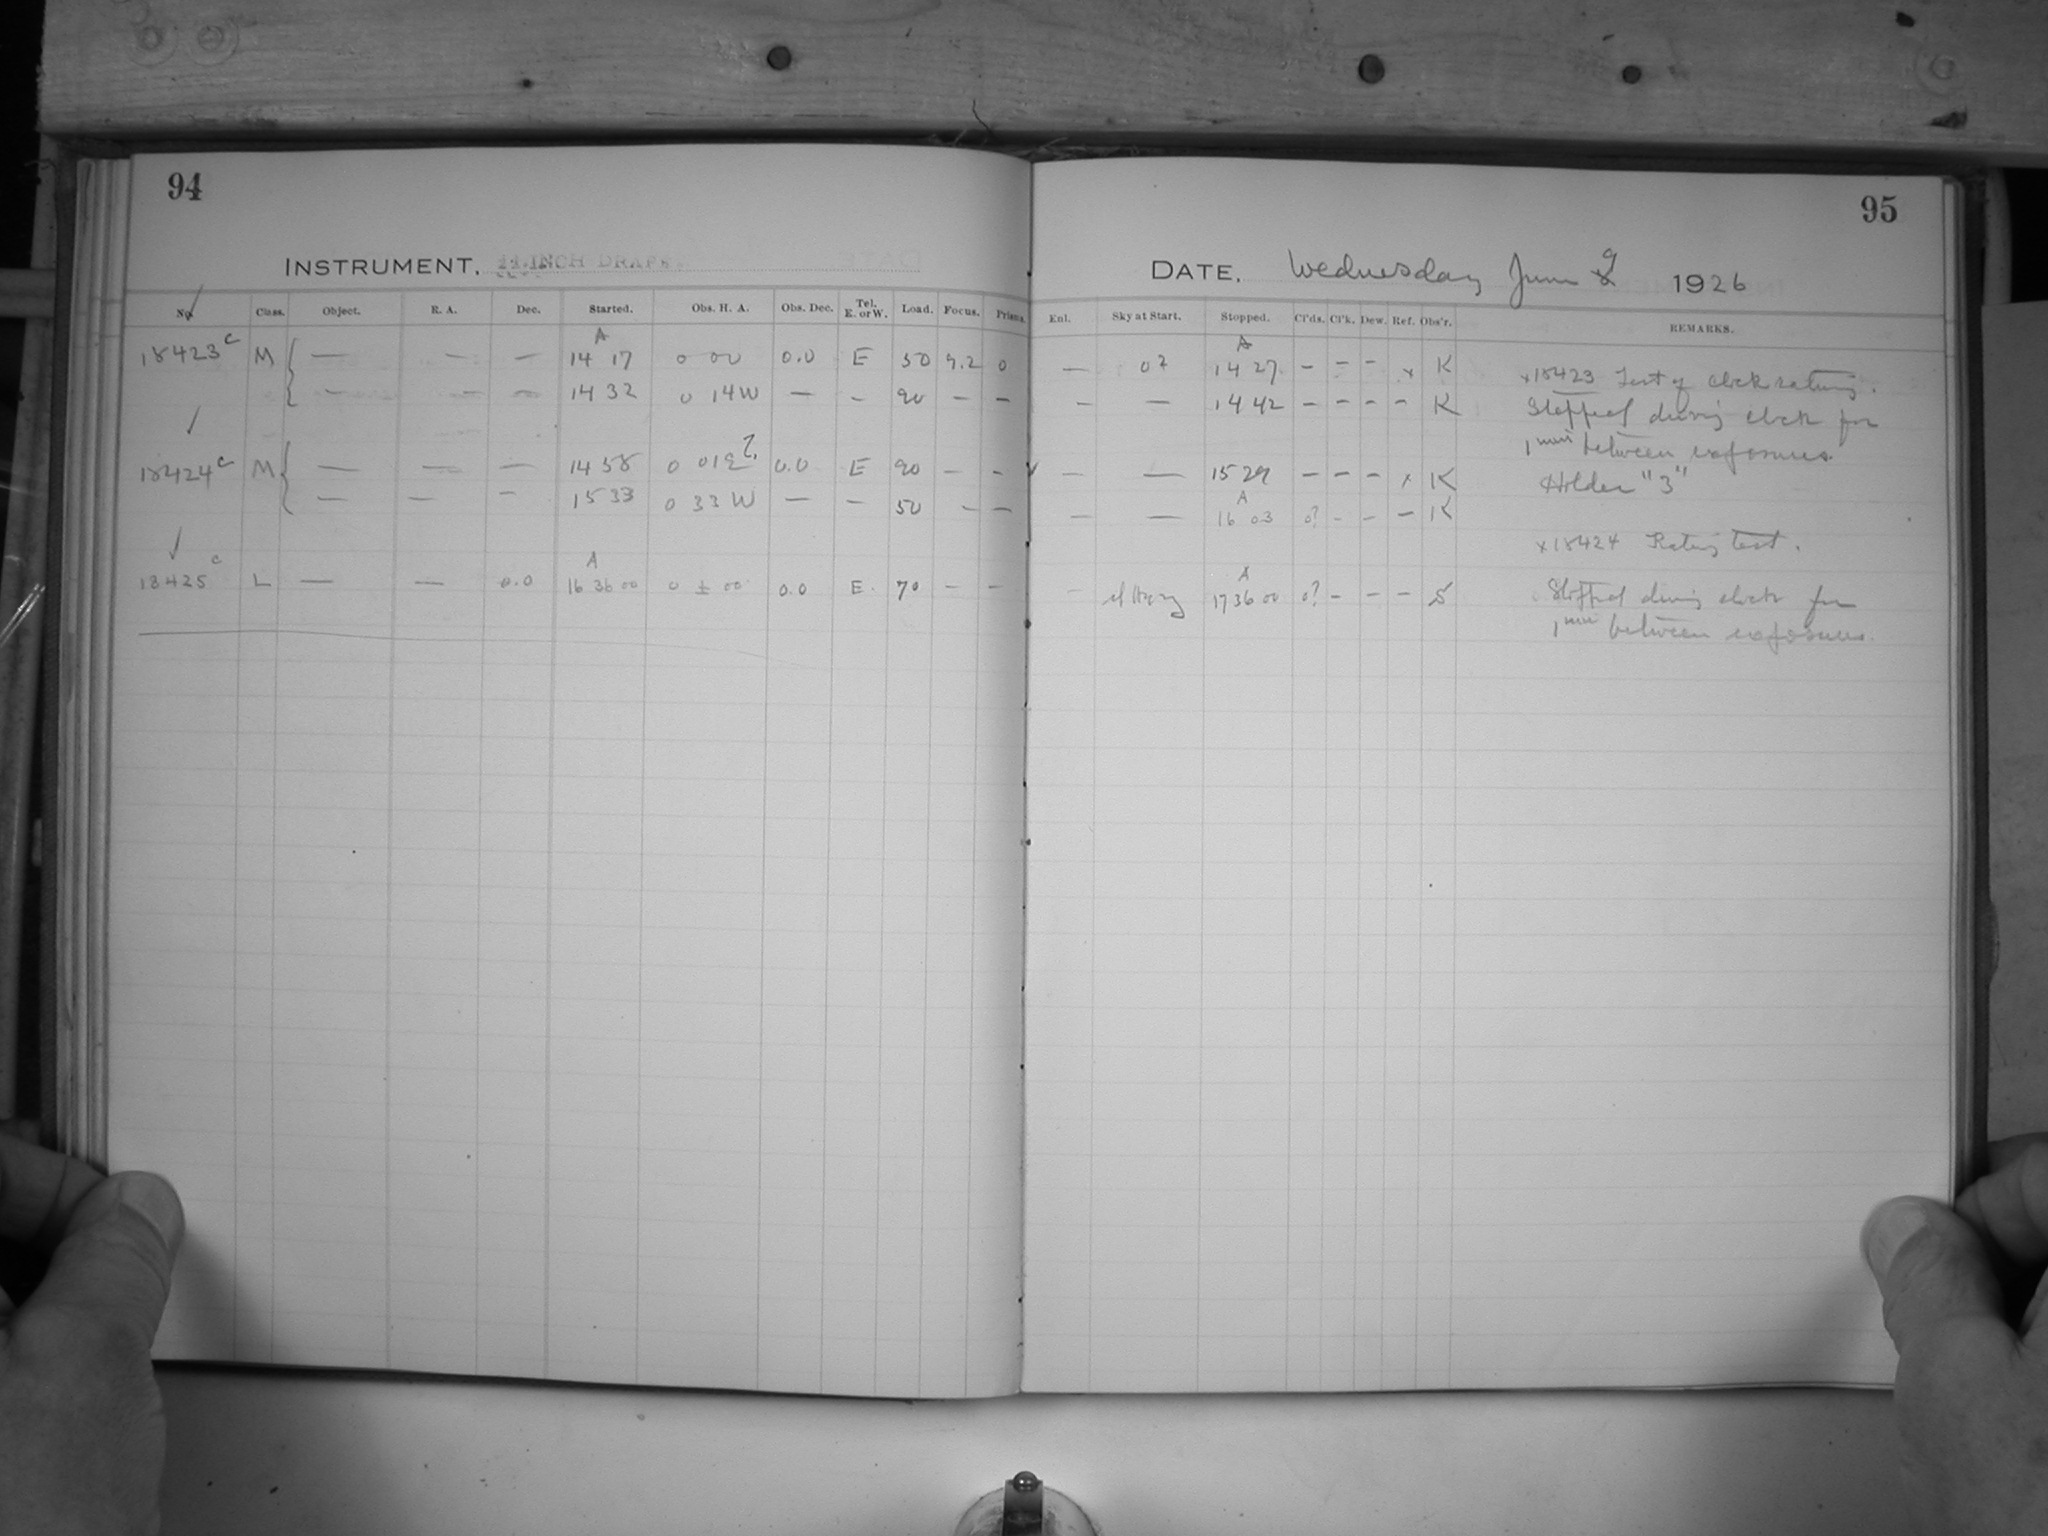 94
INSTRUMENT. 11-INCH DRAPER
No. Class. Object. R. A. Dec. Started. Obs. H. A. Obs. Dec. Tel. E. or W. Load. Focus. Prisms.
18423 c M { — — — A 14 17 0 00 0.0 E 50 9.2 0
— — — 14 32 0 14 W — – 90 – –
18424 c M { — — — 14 58 0 01 E ? 0.0 E 90 – –
— — – 15 33 0 33 W — – 50 – –
18425 c L — — 0.0 A 16 36 00 0 ± 00 0.0 E. 70 – –
95
DATE. Wednesday June 9 1926
Enl. Sky at Start. Stopped. Cl'ds. Cl'k. Dew. Ref. Obs'r. REMARKS.
— 0? A 14 27 – – – x K x18423 Test of clock rating.
– — 14 42 – – – – K Stopped driving clock for
1 min between exposures.
– — 15 29 – – – x K Holder "3"
– — A 16 03 0? – – – K
x18424 Rating test.
– sl Hazy A 17 36 00 0? – – – S Stopped driving clock for
1 min between exposures.